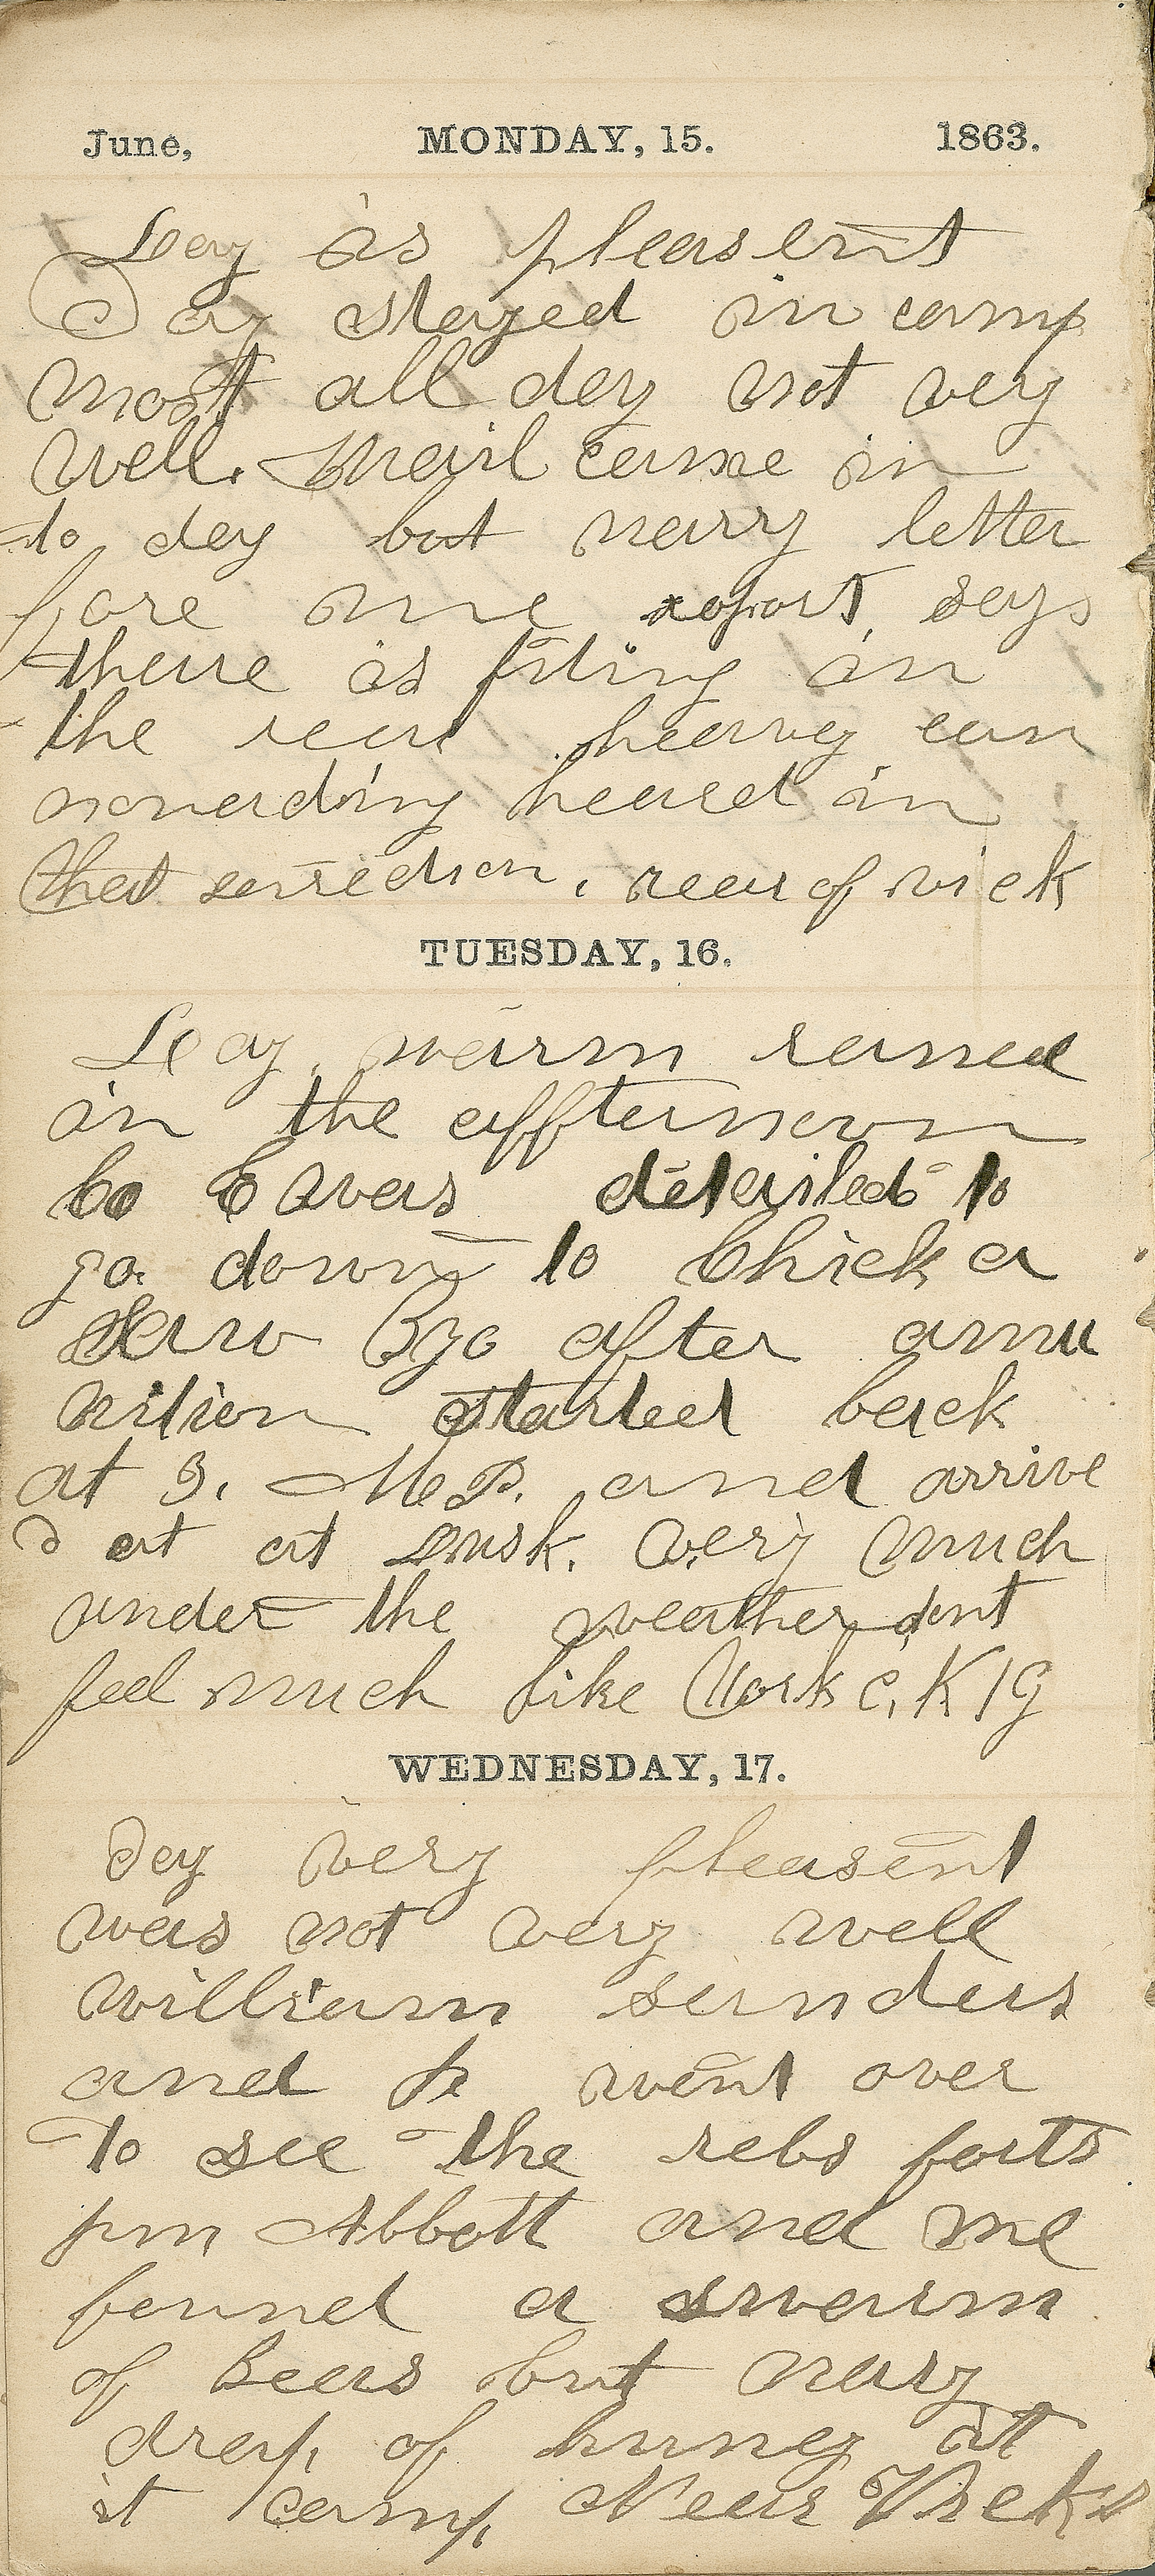 June, MONDAY, 15. 1863.
Day is pleasent
Day stayed in camp
most all day not very
well. Mail came in
to day but narry letter
fore me report, says
there is fiting in
the rear heavey can
nonerding heard in
that direction, rear of vick
TUESDAY, 16.
Day warm rained
in the affternoon
Co E was detailed to
go down to Chicka
saw Byo after amu
nition started back
at 3. M P. and arrive
d at at Dusk. very much
under the weather dont
feel much like Work C, K, G
WEDNESDAY, 17.
Day very pleasent
was not very well
william sanders
and I went over
to see the rebs forts
Jim Abbott and me
found a swarm
of beeas but nary
drap, of huney at
it camp, Near Vicks